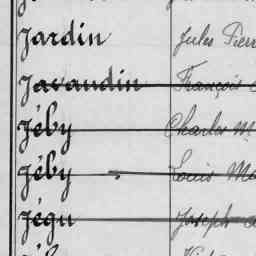 Jardin Jules Pierr
Javaudin François
Jéby Charles M
Jéby Louis Ma
Jégu Joseph